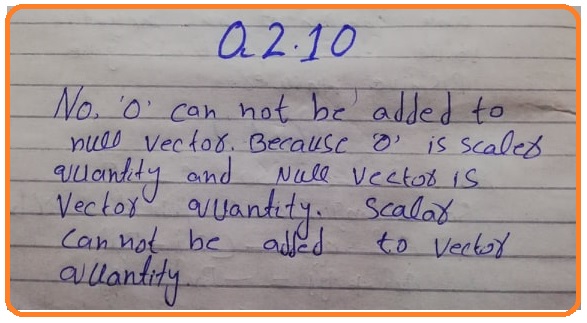 Q.2.10
No, 'O' can not be added to
null vector. Because 'O' is scaler
quantity and Null Vector is
Vector quantity. Scalar
Can not be added to vector
quantity.